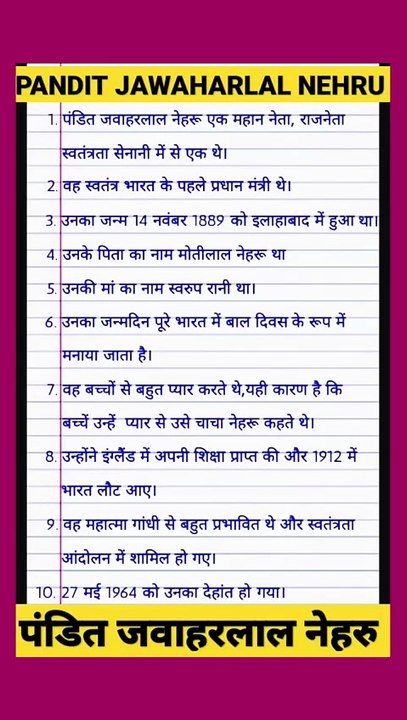 PANDIT JAWAHARLAL NEHRU
1. पंडित जवाहरलाल नेहरू एक महान नेता, राजनेता
स्वतंत्रता सेनानी में से एक थे।
2. वह स्वतंत्र भारत के पहले प्रधान मंत्री थे।
3. उनका जन्म 14 नवंबर 1889 को इलाहाबाद में हुआ था।
4. उनके पिता का नाम मोतीलाल नेहरू था
5. उनकी मां का नाम स्वरुप रानी था।
6. उनका जन्मदिन पूरे भारत में बाल दिवस के रूप में
मनाया जाता है।
7. वह बच्चों से बहुत प्यार करते थे,यही कारण है कि
बच्चें उन्हें प्यार से उसे चाचा नेहरू कहते थे।
8. उन्होंने इंग्लैंड में अपनी शिक्षा प्राप्त की और 1912 में
भारत लौट आए।
9. वह महात्मा गांधी से बहुत प्रभावित थे और स्वतंत्रता
आंदोलन में शामिल हो गए।
10. 27 मई 1964 को उनका देहांत हो गया।
पंडित जवाहरलाल नेहरु